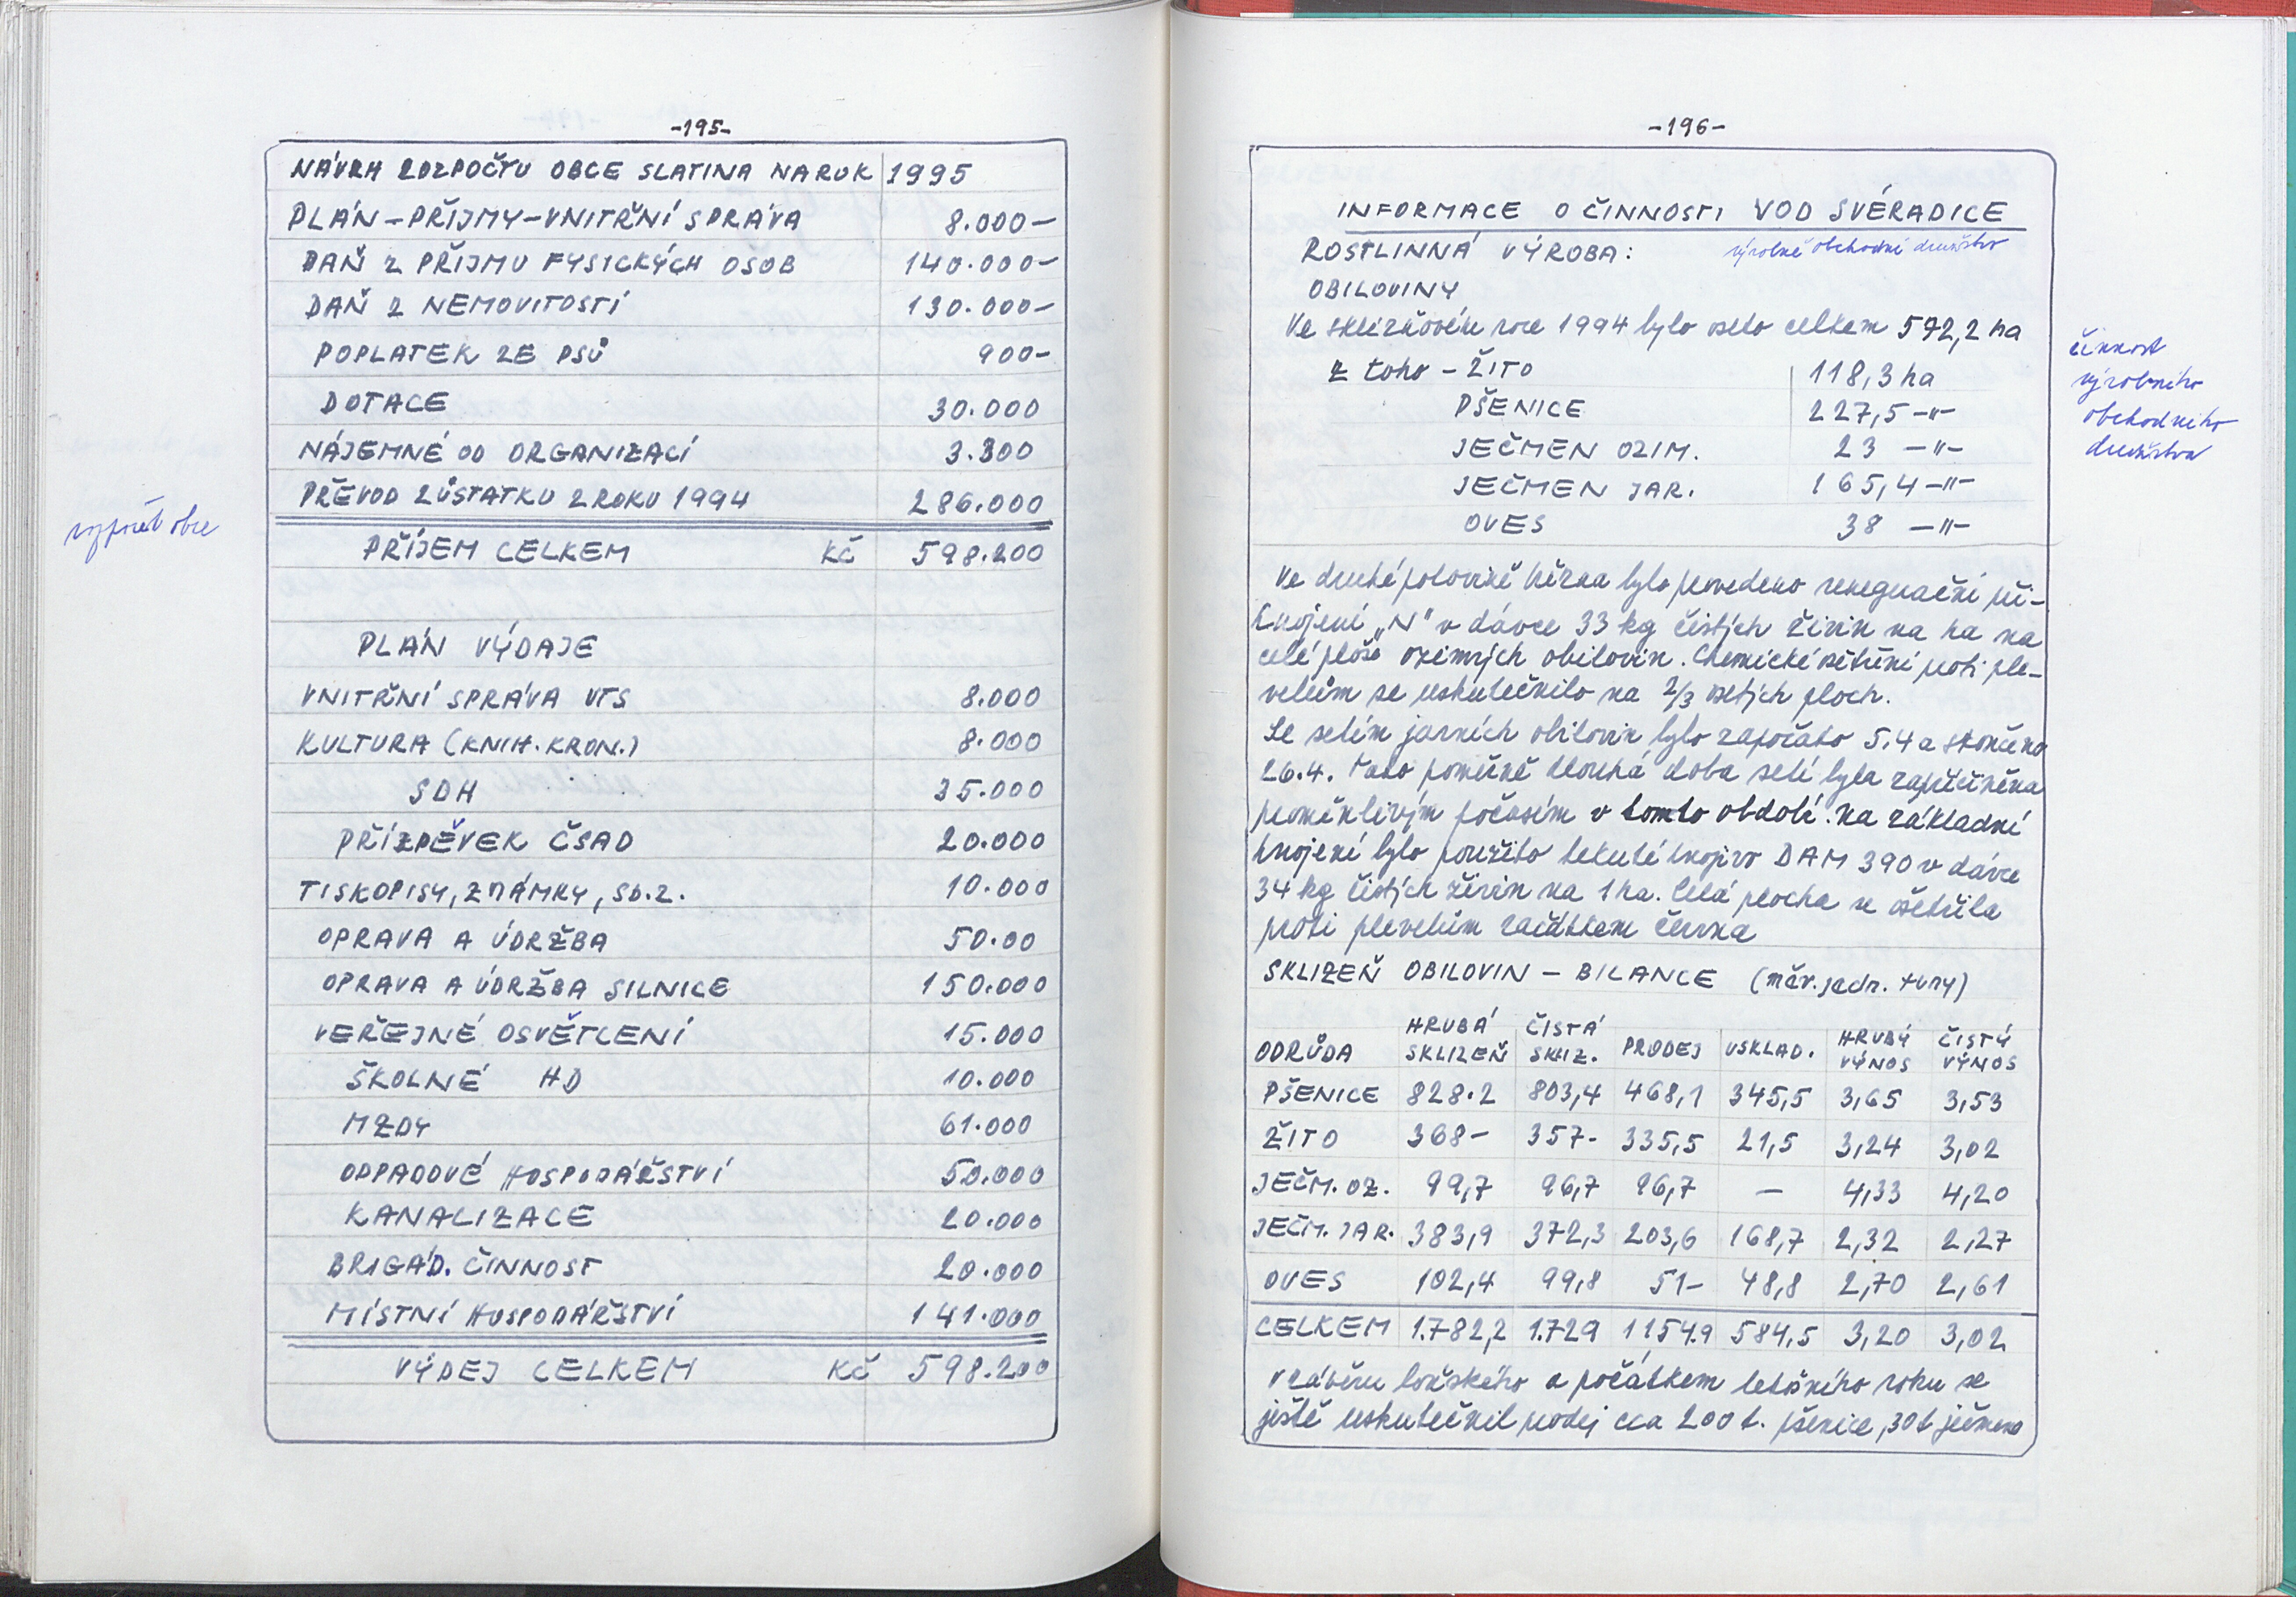 -195-
NÁVRH ROZPOČTU OBCE SLATINA NA ROK 1995
PLÁN-PŘÍJMY-VNITŘNÍ SPRÁVA 8.000-
DAŇ Z PŘÍJMU FYSICKÝCH OSOB 140.000-
DAŇ Z NEMOVITOSTÍ 130.000-
POPLATEK ZE PSŮ 900-
DOTACE 30.000
NÁJEMNÉ OD ORGANIZACÍ 3.300
PŘEVOD ZŮSTATKU Z ROKU 1994 286.000
rozpočet obce
PŘÍJEM CELKEM KČ 598.200
PLÁN VÝDAJE
VNITŘNÍ SPRÁVA VTS 8.000
KULTURA (KNIH. KRON.) 8.000
SDH 35.000
PŘÍZPĚVEK ČSAD 20.000
TISKOPISY, ZNÁMKY, SB.Z. 10.000
OPRAVA A ÚDRŽBA 50.00
OPRAVA A ÚDRŽBA SILNICE 150.000
VEŘEJNÉ OSVĚTLENÍ 15.000
ŠKOLNÉ HD 10.000
MZDY 61.000
ODPADOVÉ HOSPODÁŘSTVÍ 50.000
KANALIZACE 20.000
BRIGÁD. ČINNOST 20.000
MÍSTNÍ HOSPODÁŘSTVÍ 141.000
VÝDEJ CELKEM KČ 598.200
-196-
INFORMACE O ČINNOSTI VOD SVÉRADICE
ROSTLINNÁ VÝROBA: výrobně obchodní družstvo
OBILOVINY
Ve sklizňovém roce 1994 bylo oseto celkem 572,2 ha
z toho - ŽITO 118,3 ha
PŠENICE 227,5 -"-
JEČMEN OZIM. 23 -"-
JEČMEN JAR. 165,4 -"-
OVES 38 -"-
činnost
výrobního
obchodního
družstva
Ve druhé polovině března bylo provedeno regenerační při-
hnojení „N" v dávce 33 kg čistých živin na ha na
celé ploše ozimých obilovin. Chemické ošetření proti ple-
velům se uskutečnilo na 2/3 osetých ploch.
Se setím jarních obilovin bylo započato 5.4 a skončeno
26.4. Tato poměrně dlouhá doba setí byla zapříčiněna
proměnlivým počasím v tomto období. Na základní
hnojení bylo použito tekuté hnojivo DAM 390 v dávce
34 kg čistých živin na 1 ha. Celá plocha se ošetřila
proti plevelům začátkem června
SKLIZEŇ OBILOVIN - BILANCE (měr. jedn. tuny)
ODRŮDA HRUBÁ SKLIZEŇ ČISTÁ SKLIZ. PRODEJ USKLAD. HRUBÝ VÝNOS ČISTÝ VÝNOS
PŠENICE 828.2 803,4 468,1 345,5 3,65 3,53
ŽITO 368- 357- 335,5 21,5 3,24 3,02
JEČM. OZ. 99,7 96,7 96,7 - 4,33 4,20
JEČM. JAR. 383,9 372,3 203,6 168,7 2,32 2,27
OVES 102,4 99,8 51- 48,8 2,70 2,61
CELKEM 1.782,2 1.729 1154.9 584,5 3,20 3,02
V závěru loňského a počátkem letošního roku se
ještě uskutečnil prodej cca 200 t. pšenice, 30 t ječmene